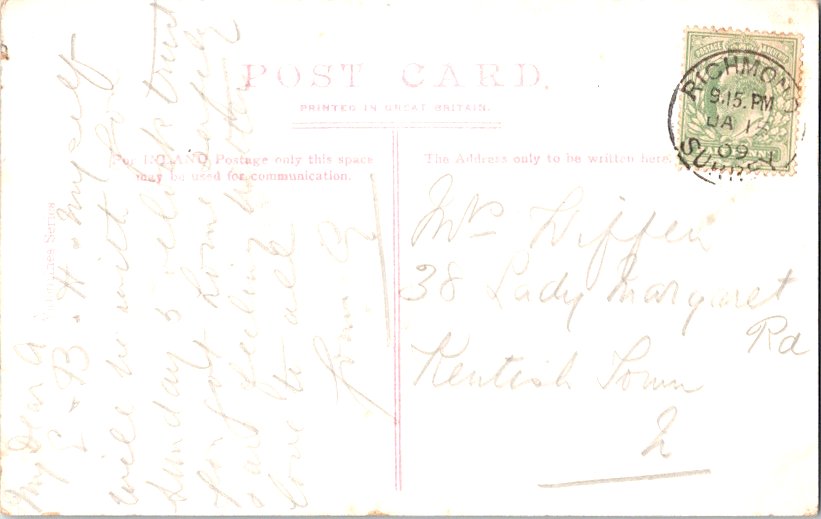 POST CARD.
PRINTED IN GREAT BRITAIN.
For INLAND Postage only this space
may be used for communication.
The Address only to be written here.
POSTAGE
RICHMOND
9.15. PM
JA 12
09
SURREY
Mrs Diffen
38 Lady Margaret
Rd
Kentish Town
My Dear
B. H. & myself
will be with for
Sunday 5 oclock trust
home safely
& feeling better
love to all
from
Series